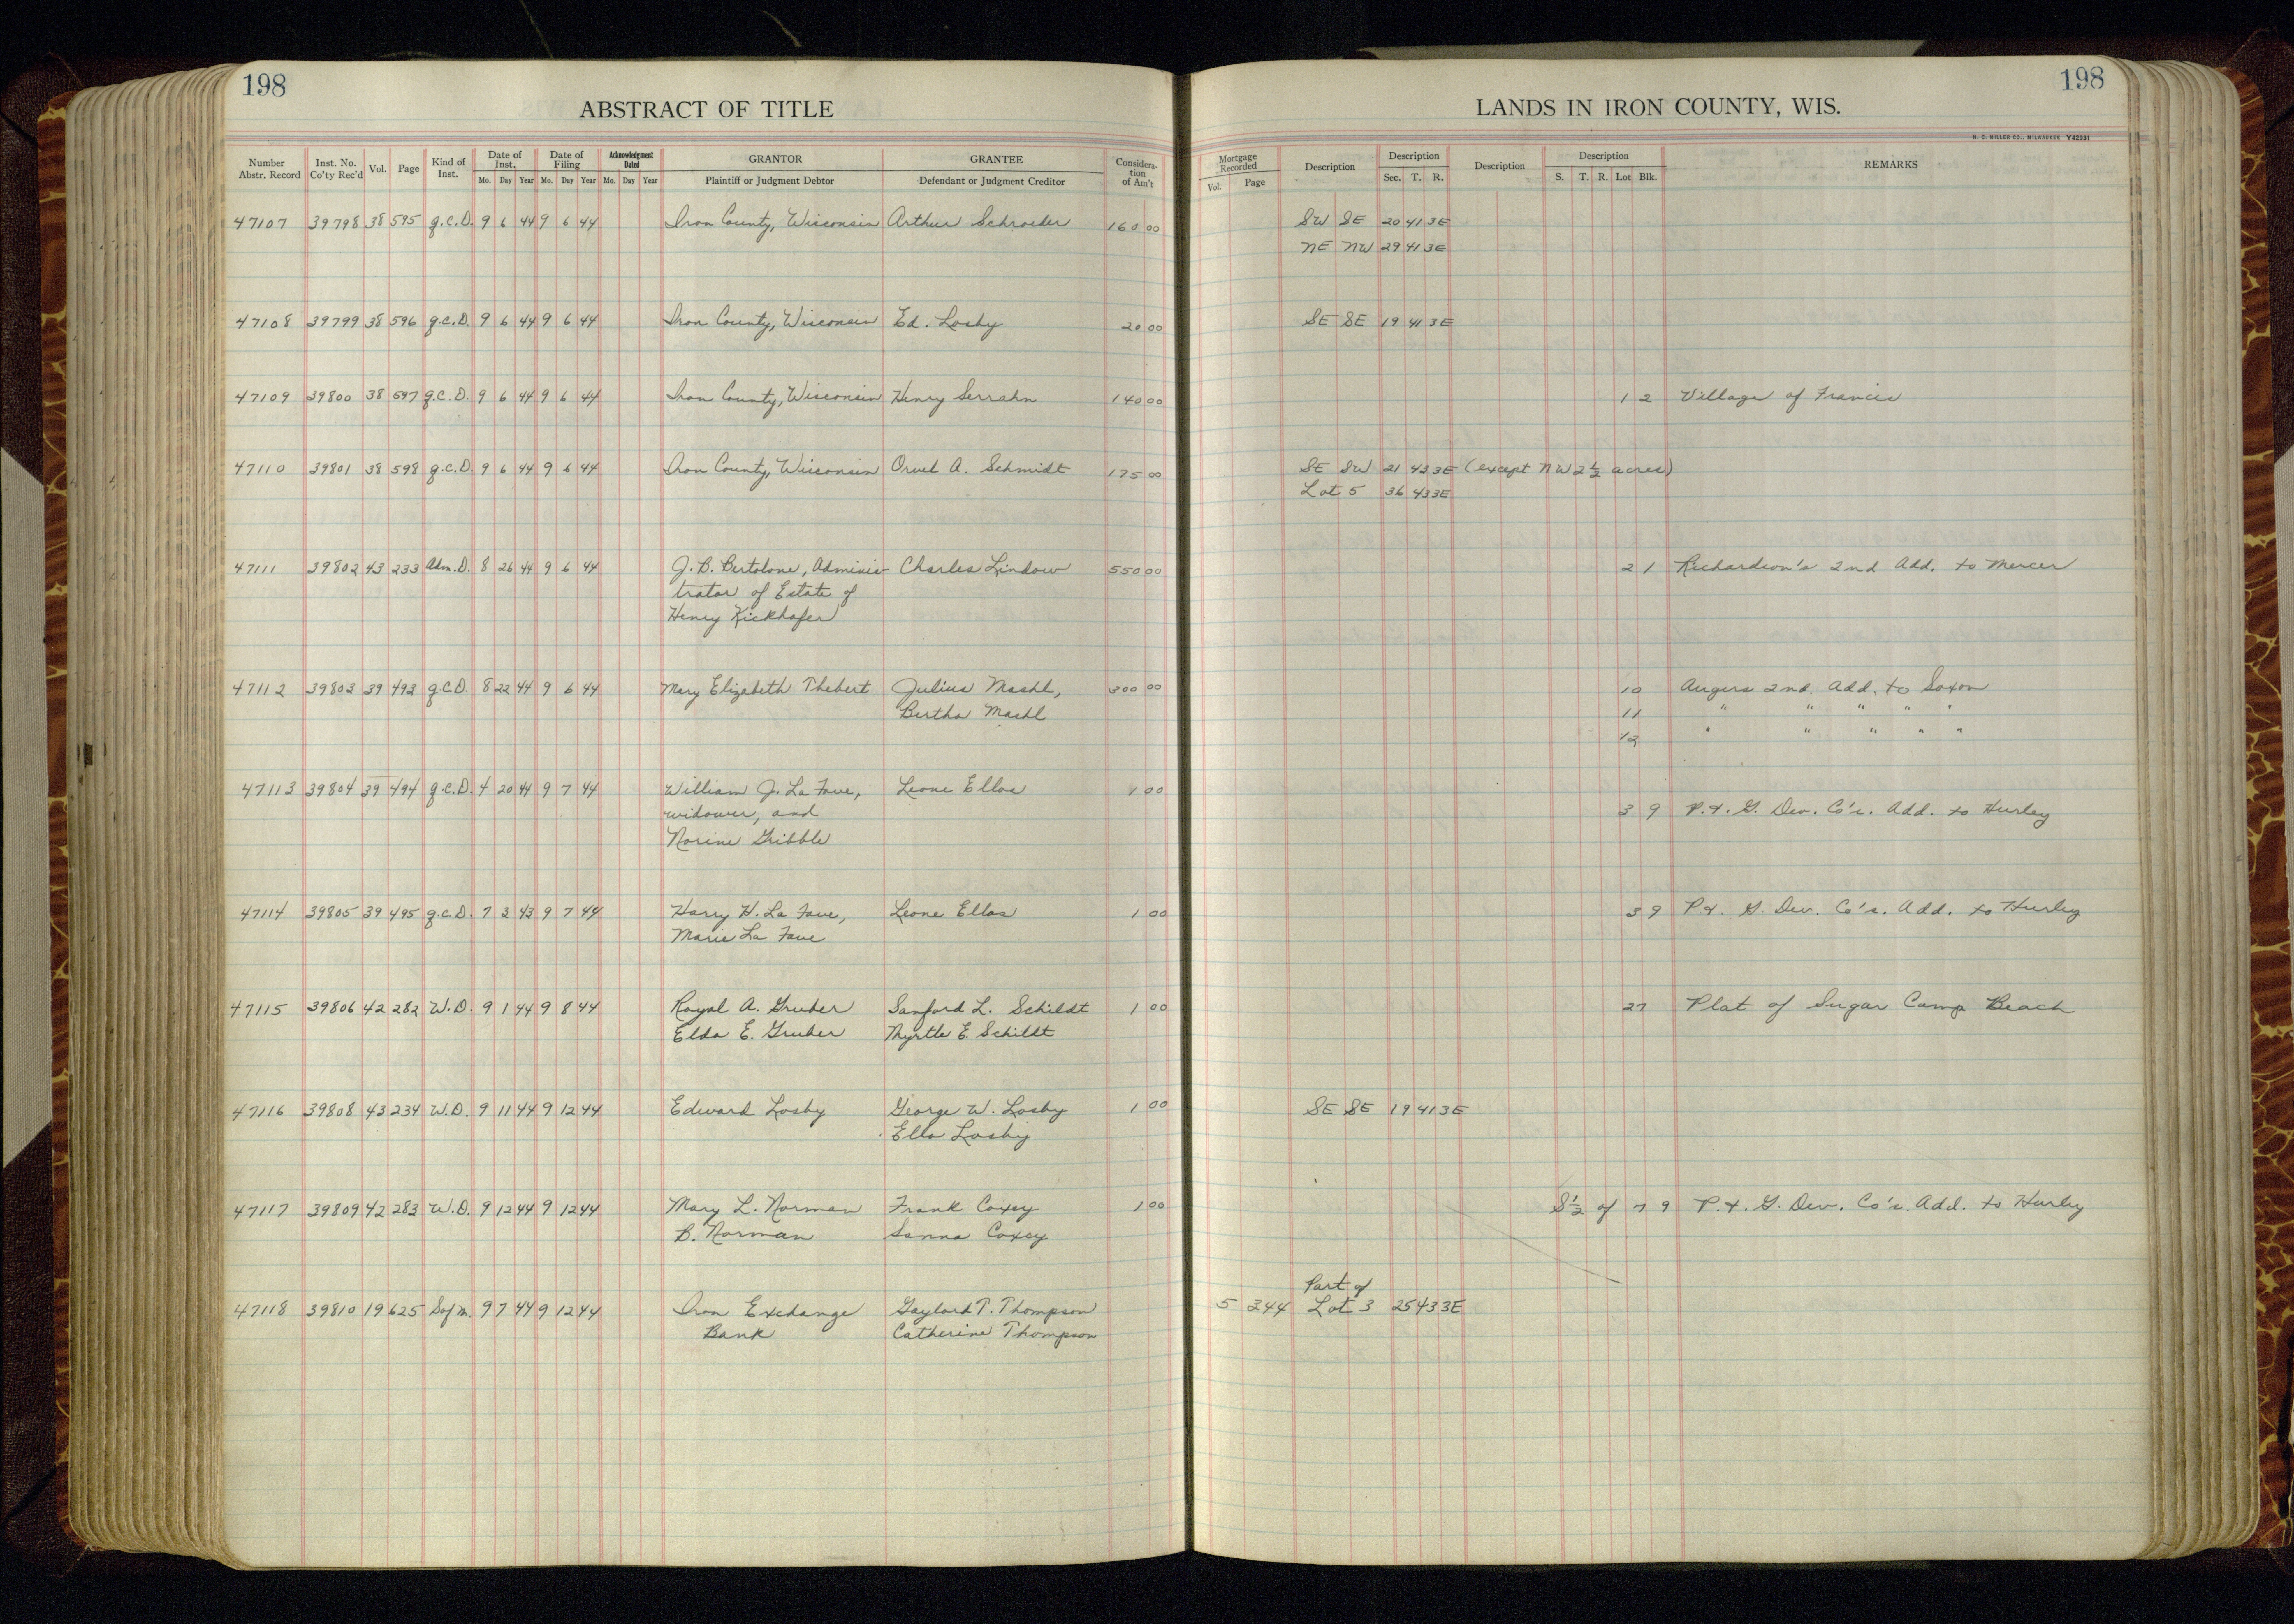 198
ABSTRACT OF TITLE
Number Abstr. Record Inst. No. Co'ty Rec'd Vol. Page Kind of Inst. Date of Inst. Mo. Day Year Date of Filing Mo. Day Year Acknowledgment Dated Mo. Day Year GRANTOR Plaintiff or Judgment Debtor GRANTEE Defendant or Judgment Creditor Considera-tion of Am't
198
LANDS IN IRON COUNTY, WIS.
H. C. MILLER CO., MILWAUKEE Y42931
Mortgage Recorded Vol. Page Description Description Sec. T. R. Description Description S. T. R. Lot Blk. REMARKS
47107 39798 38 595 g.C.D. 9 6 44 9 6 44 Iron County, Wisconsin Arthur Schroeder 160 00 SW SE 20 41 3E
NE NW 29 41 3E
47108 39799 38 596 g.C.D. 9 6 44 9 6 44 Iron County, Wisconsin Ed. Losby 20 00 SE SE 19 41 3E
47109 39800 38 597 g.C.D. 9 6 44 9 6 44 Iron County, Wisconsin Henry Serrahn 140 00 1 2 Village of Francis
47110 39801 38 598 g.C.D. 9 6 44 9 6 44 Iron County, Wisconsin Orvel A. Schmidt 175 00 SE SW 21 43 3E (except NW 2 1/2 acres)
Lot 5 36 43 3E
47111 39802 43 233 Adm. D. 8 26 44 9 6 44 J. B. Bertolone, Adminis- Charles Lindow 550 00 2 1 Richardson's 2nd Add. to Mercer
trator of Estate of
Henry Kickhafer
47112 39803 39 493 g.C.D. 8 22 44 9 6 44 Mary Elizabeth Thebert Julius Mashl, 300 00 10 Augers 2nd. Add. to Saxon
Bertha Mashl 11 " " " " "
12 " " " " "
47113 39804 39 494 g.C.D. 4 20 44 9 7 44 William J. La Fave, Leone Ellos 1 00
widower, and 3 9 P. & G. Dev. Co's. Add. to Hurley
Norine Gribble
47114 39805 39 495 g.C.D. 7 3 43 9 7 44 Harry H. La Fave, Leone Ellos 1 00 3 9 P. & G. Dev. Co's. Add. to Hurley
Marie La Fave
47115 39806 42 282 W.D. 9 1 44 9 8 44 Royal A. Gruber Sanford L. Schildt 1 00 27 Plat of Sugar Camp Beach
Elda E. Gruber Myrtle E. Schildt
47116 39808 43 234 W.D. 9 11 44 9 12 44 Edward Losby George W. Losby 1 00 SE SE 19 41 3E
Ella Losby
47117 39809 42 283 W.D. 9 12 44 9 12 44 Mary L. Norman Frank Coxey 1 00 S 1/2 of 7 9 P. & G. Dev. Co's. Add. to Hurley
B. Norman Sanna Coxey
Part of
47118 39810 19 625 S of M. 9 7 44 9 12 44 Iron Exchange Gaylord T. Thompson 5 344 Lot 3 25 43 3E
Bank Catherine Thompson